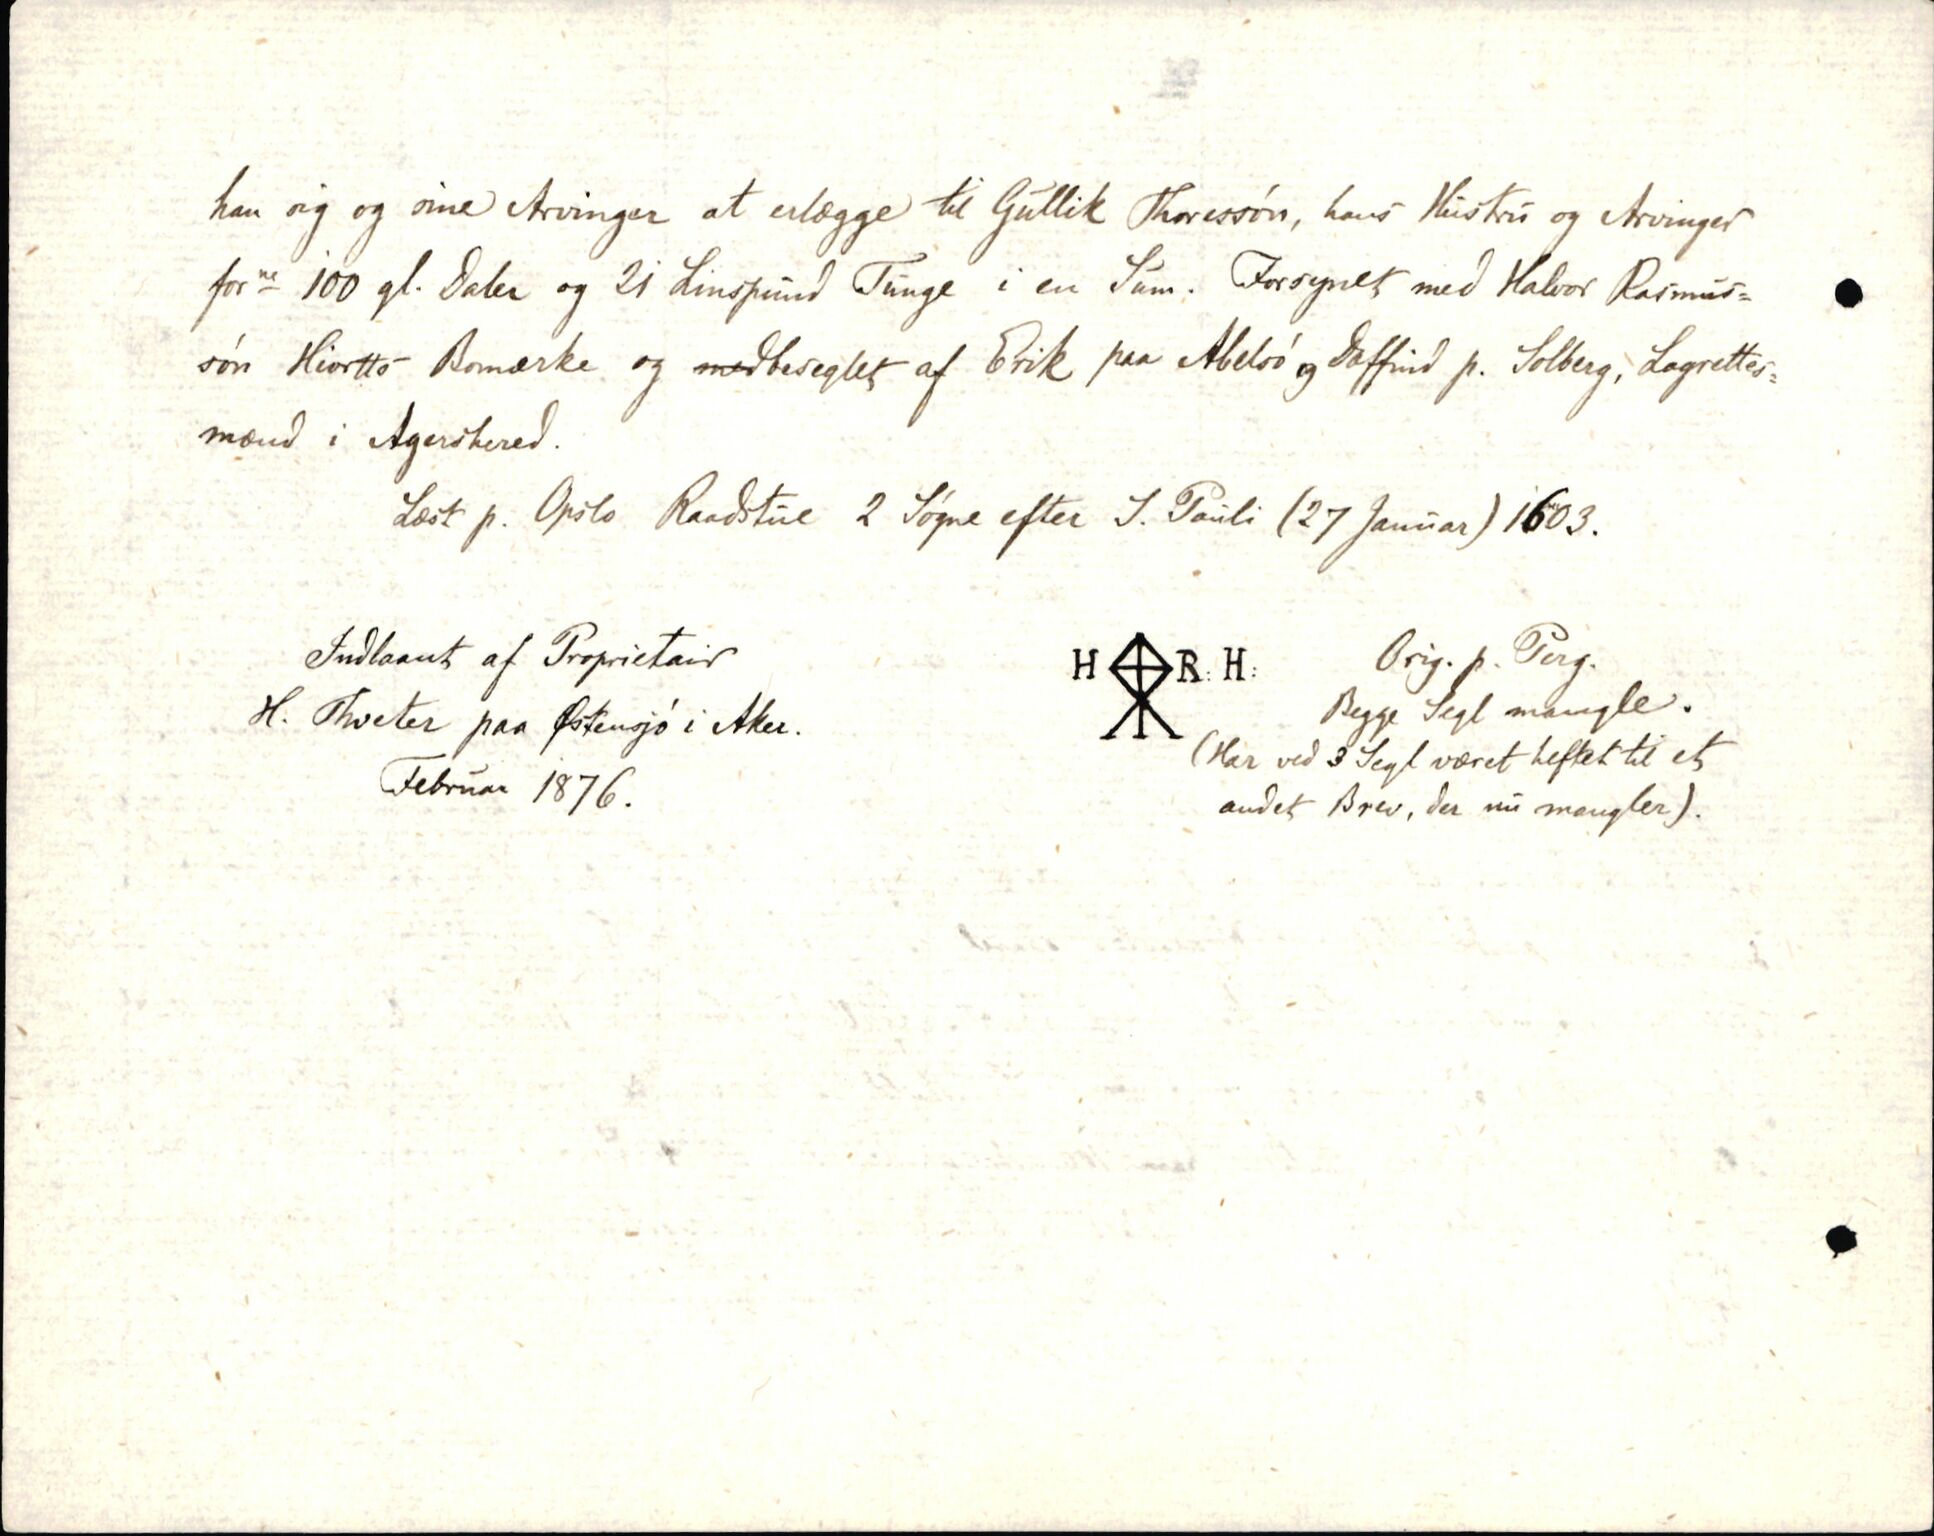 han sig og sine Arvinger at erlægge til Gullik Thoressøn, hans Hustru og Arvinger
for<sup>ne</sup> 100 gl. Daler og 21 Linspund Tunge i en Sum. Forsynet med Halvor Rasmus=
søn Hiortts Bomærke og medbeseglet af Erik paa Abelsø og Daffind p. Solberg, Lagrettes=
mænd i Agershered.
Læst p. Opslo Raadstue 2 Søgne efter S. Pauli (27 Januar) 1603.
Indlaant af Proprietair
H. Thveter paa Østensjø i Aker.
Februar 1876.
H R: H:
Orig. p. Perg.
Begge Segl mangle.
(Har ved 3 Segl været heftet til et
andet Brev, der nu mangler).